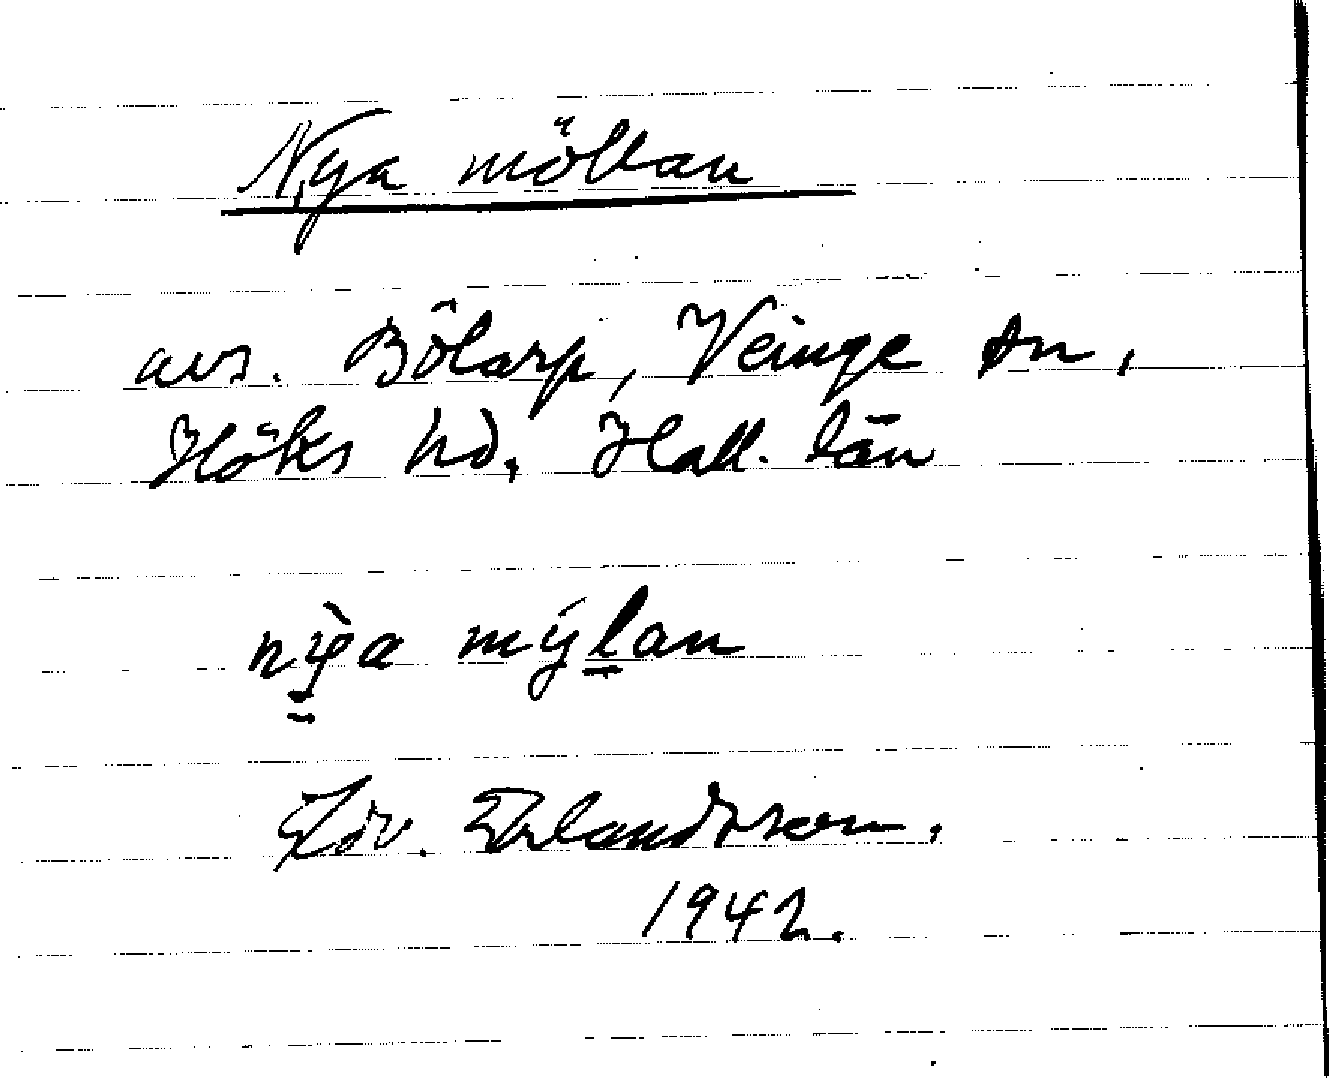 Nya möllan
avs. Bölarp, Veinge sn,
Höks hd, Hall. län
nỳa mýlan
Edv. Erlandsson.
1942.